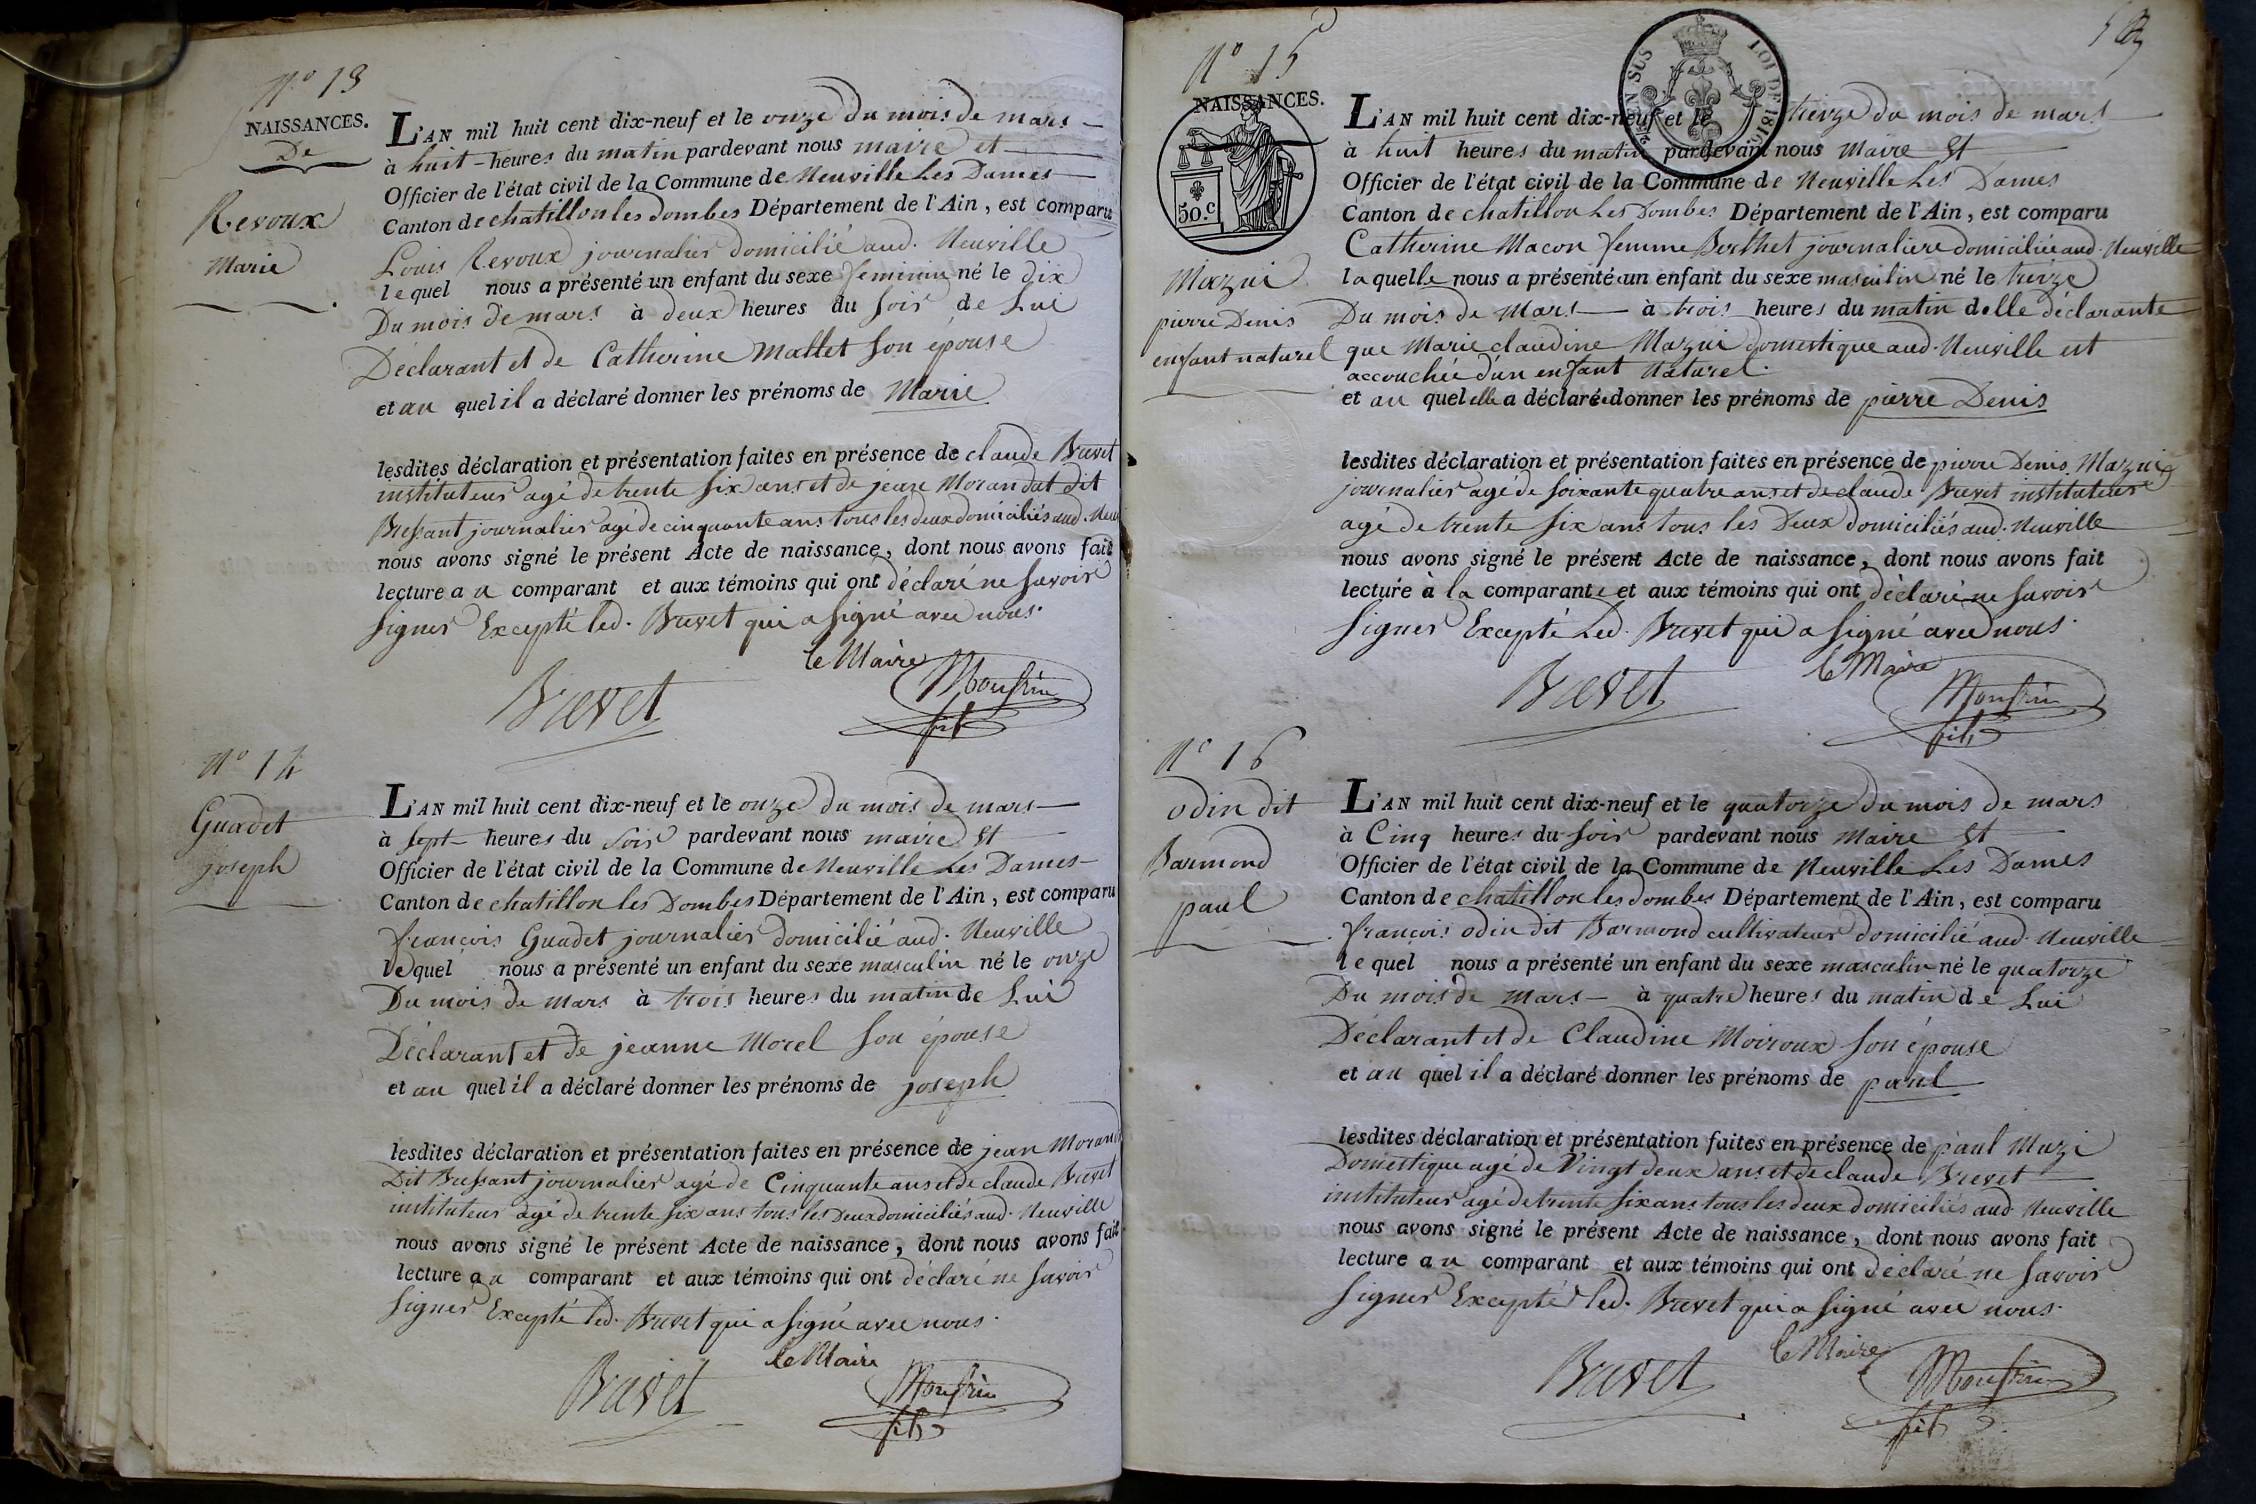 N° 13
NAISSANCES.
De
Revoux
Marie
L'AN mil huit cent dix-neuf et le onze du mois de mars
à huit heures du matin pardevant nous maire et
Officier de l'état civil de la Commune de Neuville Les Dames
Canton de chatillon les dombes Département de l'Ain, est comparu
Louis Revoux journalier domicilié aud. Neuville
lequel nous a présenté un enfant du sexe feminin né le dix
Du mois de mars à deux heures du soir de Lui
Déclarant et de Catherine Mallet son épouse
et au quel il a déclaré donner les prénoms de Marie
lesdites déclaration et présentation faites en présence de claude Brevet
instituteur agé de trente six ans et de jean Morandat dit
Bressant journalier agé de cinquante ans tous les deux domiciliés aud. Neuv
nous avons signé le présent Acte de naissance, dont nous avons fait
lecture au comparant et aux témoins qui ont déclaré ne savoir
signer Excepté led. Brevet qui a signé avec nous.
le Maire
Brevet
Monfrin
fils
N° 14
Guadet
joseph
L'AN mil huit cent dix-neuf et le onze du mois de mars
à sept heures du soir pardevant nous maire et
Officier de l'état civil de la Commune de Neuville Les Dames
Canton de chatillon les Dombes Département de l'Ain, est comparu
françois Guadet journalier domicilié aud. Neuville
lequel nous a présenté un enfant du sexe masculin né le onze
Du mois de mars à trois heures du matin de Lui
Déclarant et de jeanne Morel son épouse
et au quel il a déclaré donner les prénoms de joseph
lesdites déclaration et présentation faites en présence de jean Morand
Dit Bressant journalier agé de Cinquante ans et de claude Brevet
instituteur agé de trente six ans tous les deux domiciliés aud. Neuville
nous avons signé le présent Acte de naissance, dont nous avons fait
lecture au comparant et aux témoins qui ont déclaré ne savoir
signer Excepté led. Brevet qui a signé avec nous.
le Maire
Brevet
Monfrin
fils
N° 15
NAISSANCES.
50.c
LOI DE 1816
Mazui
pierre Denis
enfant naturel
L'AN mil huit cent dix-neuf et le treize du mois de mars
à huit heures du matin pardevant nous Maire et
Officier de l'état civil de la Commune de Neuville Les Dames
Canton de chatillon Les Dombes Département de l'Ain, est comparu
Catherine Macon femme Berthet journaliere domiciliée aud. Neuville
laquelle nous a présenté un enfant du sexe masculin né le treize
Du mois de Mars à trois heures du matin d'elle déclarante
que Marie claudine Mazui domestique aud. Neuville est
accouchée d'un enfant Naturel.
et au quel elle a déclaré donner les prénoms de pierre Denis
lesdites déclaration et présentation faites en présence de pierre Denis Mazui
journalier agé de soixante quatre ans et de claude Brevet instituteur
agé de trente six ans tous les Deux domiciliés aud. Neuville
nous avons signé le présent Acte de naissance, dont nous avons fait
lecture à la comparante et aux témoins qui ont déclaré ne savoir
signer Excepté Led. Brevet qui a signé avec nous.
le Maire
Brevet
Monfrin
fils
N° 16
odin dit
Barmond
paul
L'AN mil huit cent dix-neuf et le quatorze du mois de mars
à Cinq heures du soir pardevant nous Maire et
Officier de l'état civil de la Commune de Neuville Les Dames
Canton de chatillon les dombes Département de l'Ain, est comparu
françois odin dit Barmond cultivateur domicilié aud. Neuville
lequel nous a présenté un enfant du sexe masculin né le quatorze
Du mois de Mars à quatre heures du matin de Lui
Déclarant et de Claudine Moiroux son épouse
et au quel il a déclaré donner les prénoms de paul
lesdites déclaration et présentation faites en présence de paul Muzi
Domestique agé de Vingt deux ans et de claude Brevet
instituteur agé de trente six ans tous les deux domiciliés aud. Neuville
nous avons signé le présent Acte de naissance, dont nous avons fait
lecture au comparant et aux témoins qui ont déclaré ne savoir
signer Excepté led. Brevet qui a signé avec nous.
le Maire
Brevet
Monfrin
fils